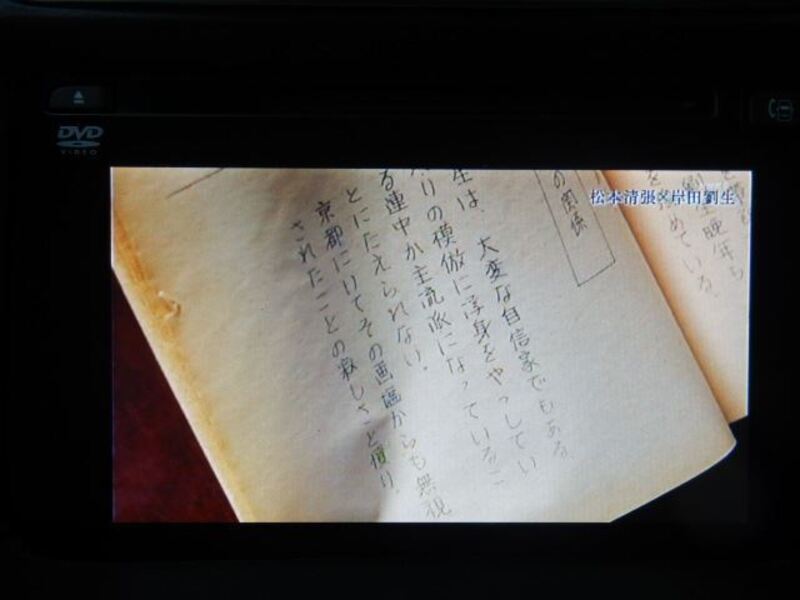 DVD
VIDEO
松本清張×岸田劉生
劉生晩年も
を極めている。
の関係
生は、大変な自信家でもある。
りの模倣に浮身をやつしてい
る連中が主流派になっているこ
とにたえられない。
京都にいてその画壇からも無視
されたことの寂しさと憤り。